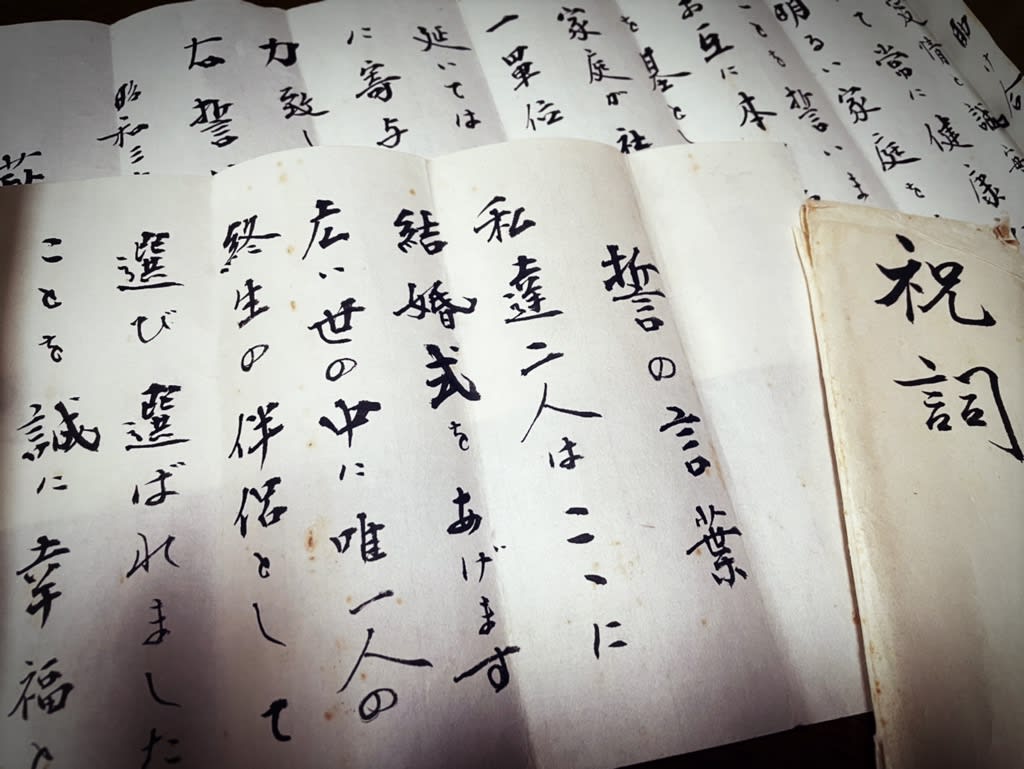 祝詞
誓の言葉
私達二人はここに
結婚式をあげます
広い世の中に唯一人の
終生の伴侶として
選び選ばれました
ことを誠に幸福と
愛情と誠
て常に健康
明るい家庭を
ことを誓いま
お互に本
を基とし
家庭が社
一單位
延いては
に寄与
力致し
右誓
昭和三